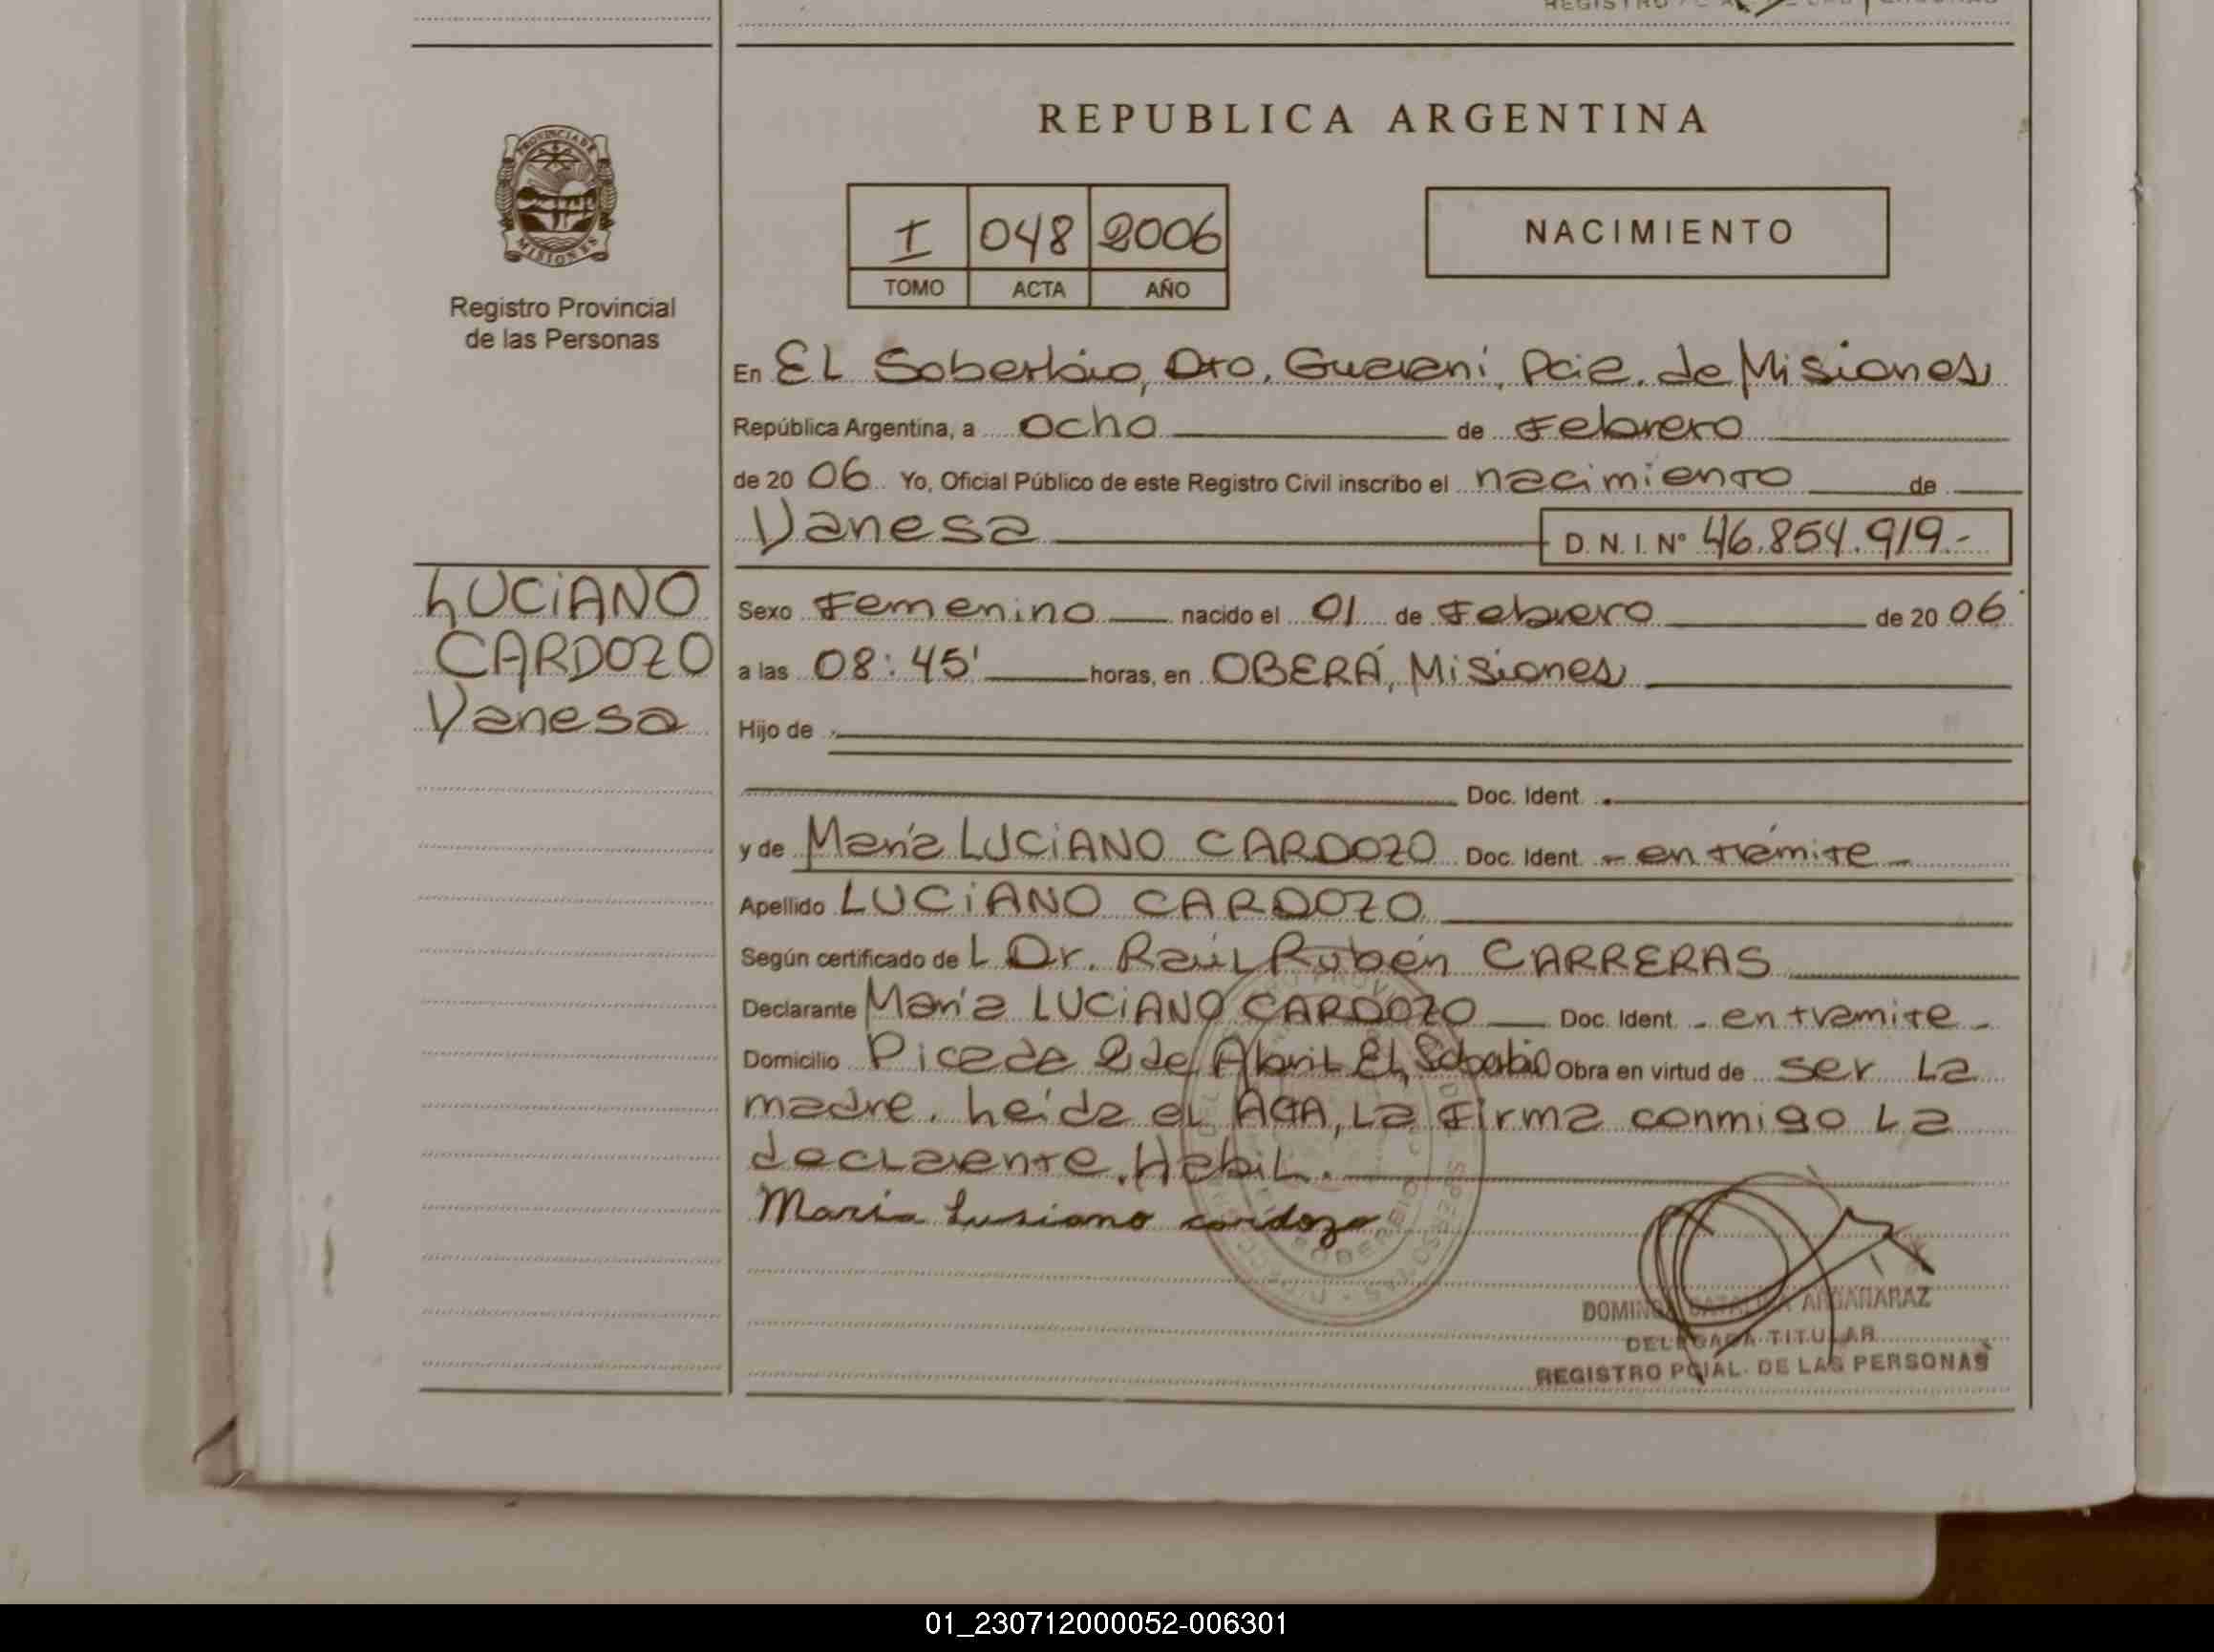 REPUBLICA ARGENTINA
PROVINCIA DE MISIONES
Registro Provincial
de las Personas
I 048 2006
TOMO ACTA AÑO
NACIMIENTO
En EL Soberbio, Dto. Guarani, Pcia. de Misiones
República Argentina, a ocho de Febrero
de 20 06 Yo, Oficial Público de este Registro Civil inscribo el nacimiento de
Vanesa D.N.I. Nº 46.854.919.-
LUCIANO
CARDOZO
Vanesa
Sexo Femenino nacido el 01 de Febrero de 20 06
a las 08:45' horas, en OBERÁ, Misiones
Hijo de
Doc. Ident.
y de María LUCIANO CARDOZO Doc. Ident. - en trámite -
Apellido LUCIANO CARDOZO
Según certificado de L Dr. Raúl Rubén CARRERAS
Declarante María LUCIANO CARDOZO Doc. Ident. - en tramite -
Domicilio Picada 2 de Abril El Soberbio Obra en virtud de ser La
madre. Leída el ACTA, La Firma conmigo La
declarante. Habil.
María Lusiano cardozo
DOMINGA CATALINA ARGAÑARAZ
DELEGADA TITULAR
REGISTRO PCIAL. DE LAS PERSONAS
01_230712000052-006301